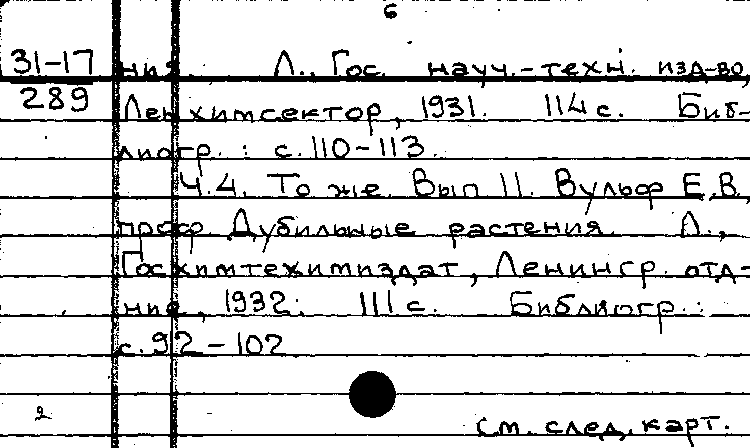 6
31-17 ния. Л., Гос. науч.-техн. изд-во,
289 Ленхимсектор, 1931. 114 с. Биб-
лиогр.: с. 110-113.
Ч. 4. То же. Вып 11. Вульф Е.В.,
проф. Дубильные растения. Л.,
Госхимтехимиздат, Ленингр. отд-
ние, 1932. 111 с. Библиогр.:
с. 92-102
2
см. след. карт.